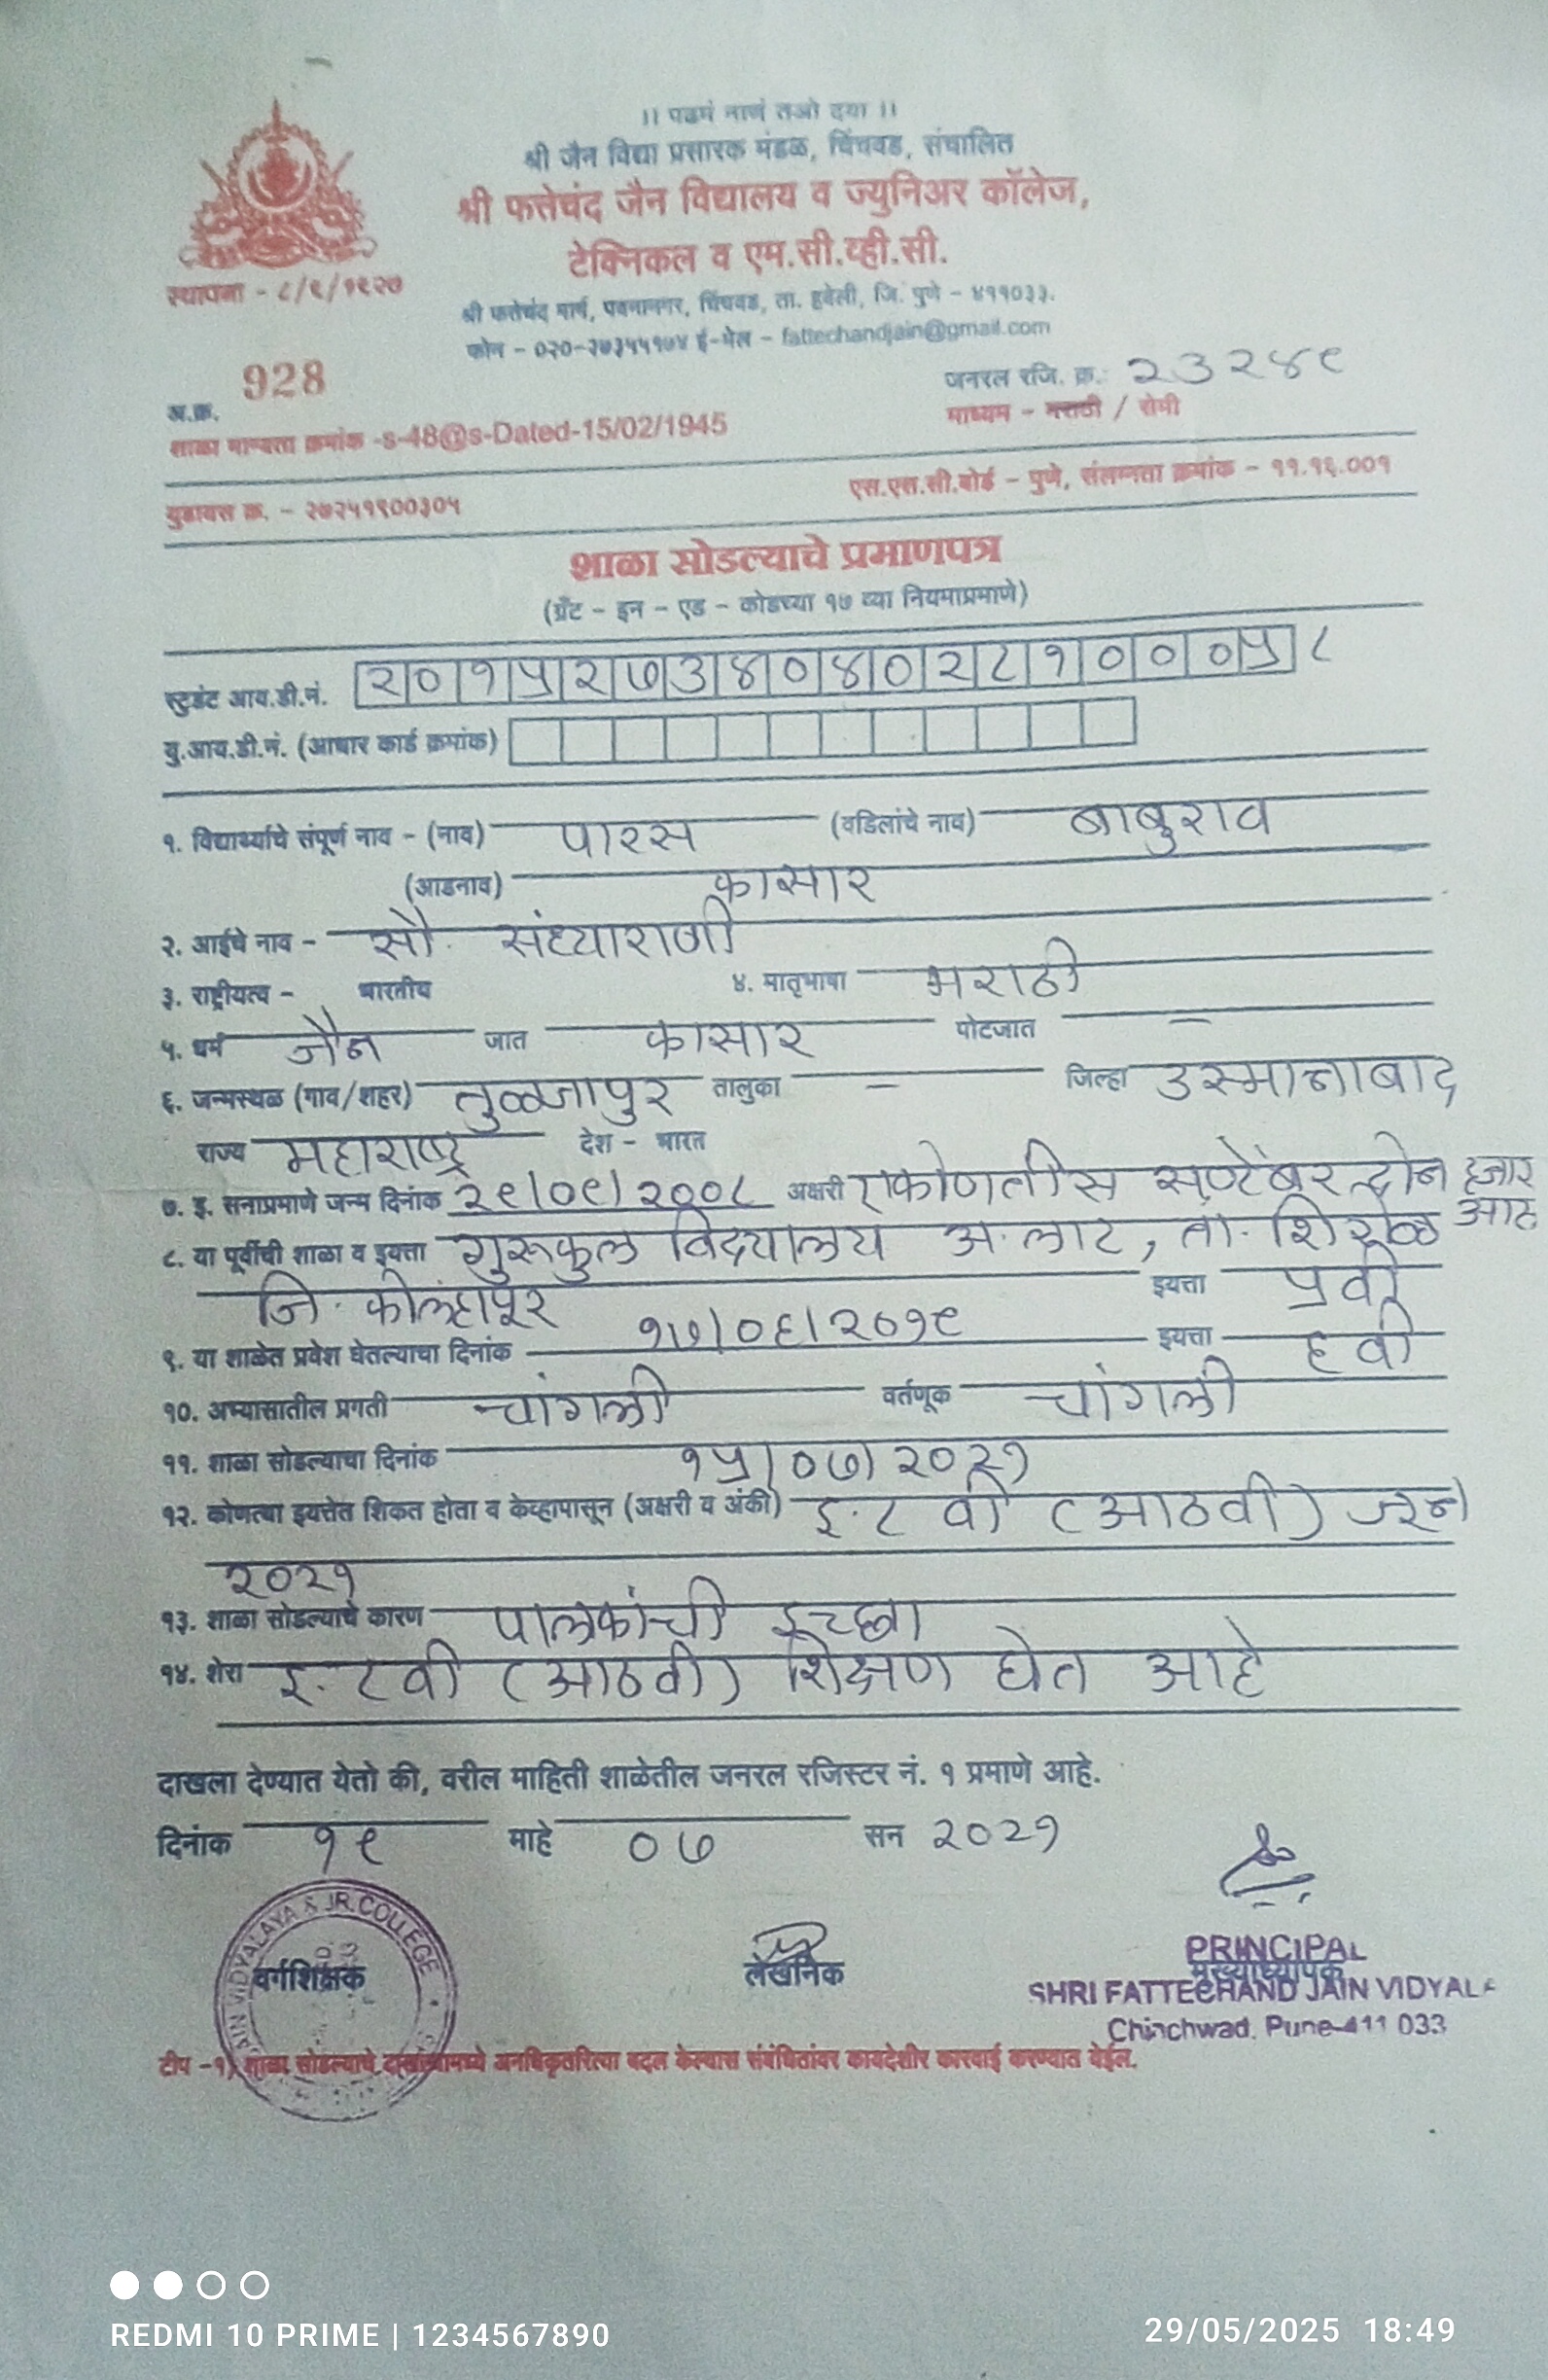 ।। पढमं नाणं तओ दया ।।
श्री जैन विद्या प्रसारक मंडळ, चिंचवड, संचालित
श्री फत्तेचंद जैन विद्यालय व ज्युनिअर कॉलेज,
टेक्निकल व एम.सी.व्ही.सी.
स्थापना - ८/९/१९२७
श्री फत्तेचंद मार्ग, पवनानगर, चिंचवड, ता. हवेली, जि. पुणे - ४११०३३.
फोन - ०२०-२७३५५१७४ ई-मेल - fattechandjain@gmail.com
अ.क्र. 928
जनरल रजि. क्र. २३२४९
शाळा मान्यता क्रमांक -s-48@s-Dated-15/02/1945
माध्यम - मराठी / सेमी
युडायस क्र. - २७२५१९००३०५
एस.एस.सी.बोर्ड - पुणे, संलग्नता क्रमांक - ११.१६.००१
शाळा सोडल्याचे प्रमाणपत्र
(ग्रँट - इन - एड - कोडच्या १७ व्या नियमाप्रमाणे)
स्टुडंट आय.डी.नं. २०१५२७३४०४०२८१०००५८
यु.आय.डी.नं. (आधार कार्ड क्रमांक)
१. विद्यार्थ्याचे संपूर्ण नाव - (नाव) पारस (वडिलांचे नाव) बाबुराव
(आडनाव) कासार
२. आईचे नाव - सौ. संध्याराणी
३. राष्ट्रीयत्व - भारतीय ४. मातृभाषा मराठी
५. धर्म जैन जात कासार पोटजात -
६. जन्मस्थळ (गाव/शहर) तुळजापुर तालुका - जिल्हा उस्मानाबाद
राज्य महाराष्ट्र देश - भारत
७. इ. सनाप्रमाणे जन्म दिनांक २९/०९/२००८ अक्षरी एकोणतीस सप्टेंबर दोन हजार आठ
८. या पूर्वीची शाळा व इयत्ता गुरुकुल विद्यालय अ.लाट, ता. शिरोळ
जि. कोल्हापूर इयत्ता ५वी
९. या शाळेत प्रवेश घेतल्याचा दिनांक १७/०६/२०१९ इयत्ता ६वी
१०. अभ्यासातील प्रगती चांगली वर्तणूक चांगली
११. शाळा सोडल्याचा दिनांक १५/०७/२०२१
१२. कोणत्या इयत्तेत शिकत होता व केव्हापासून (अक्षरी व अंकी) इ.८ वी (आठवी) जून
२०२१
१३. शाळा सोडल्याचे कारण पालकांची इच्छा
१४. शेरा इ.८वी (आठवी) शिक्षण घेत आहे
दाखला देण्यात येतो की, वरील माहिती शाळेतील जनरल रजिस्टर नं. १ प्रमाणे आहे.
दिनांक १९ माहे ०७ सन २०२१
JAIN VIDYALAYA & JR.COLLEGE
वर्गशिक्षक लेखनिक मुख्याध्यापक
PRINCIPAL
SHRI FATTECHAND JAIN VIDYALA
Chinchwad, Pune-411 033
टीप -१) शाळा सोडल्याचे दाखल्यामध्ये अनधिकृतरित्या बदल केल्यास संबंधितांवर कायदेशीर कारवाई करण्यात येईल.
REDMI 10 PRIME | 1234567890
29/05/2025 18:49